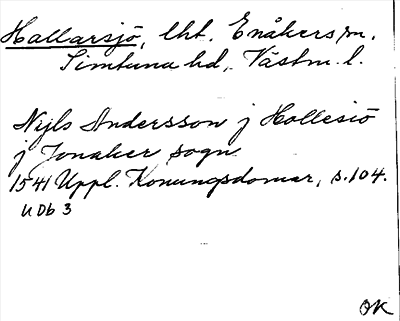 Hallarsjö, lht. Enåkers sn,
Simtuna hd, Västm. l.
Nijls Andersson j Hollesiö
j Jonaker sogn
1541 Uppl. Konungsdomar, s. 104.
UDb 3
OK